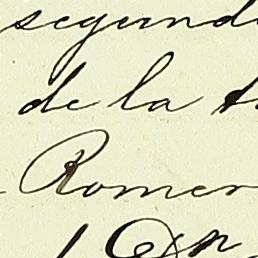 segund
de la t
Romer